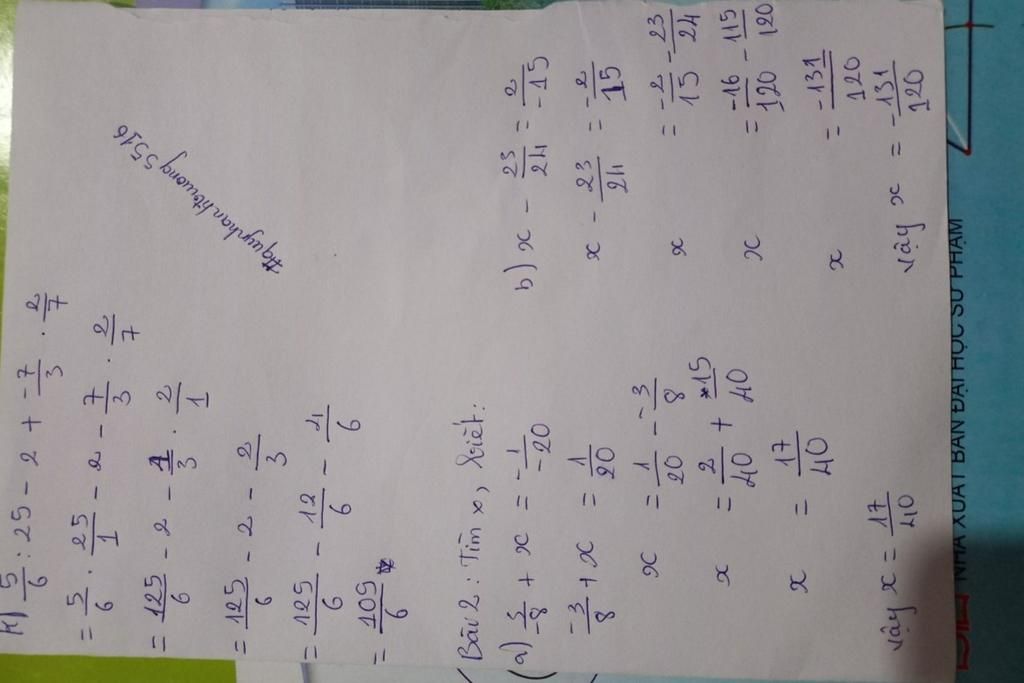 k) 5/6 : 25 - 2 + -7/3 . 2/7
= 5/6 . 25/1 - 2 - 7/3 . 2/7
= 125/6 - 2 - 1/3 . 2/1
= 125/6 - 2 - 2/3
= 125/6 - 12/6 - 4/6
= 109/6
#quynhanhtowong5516
Bài 2: Tìm x, biết:
a) 3/-8 + x = -1/-20
-3/8 + x = 1/20
x = 1/20 - -3/8
x = 2/40 + 15/40
x = 17/40
Vậy x = 17/40
b) x - 23/24 = 2/-15
x - 23/24 = -2/15
x = -2/15 - 23/24
x = -16/120 - 115/120
x = -131/120
Vậy x = -131/120
NHÀ XUẤT BẢN ĐẠI HỌC SƯ PHẠM